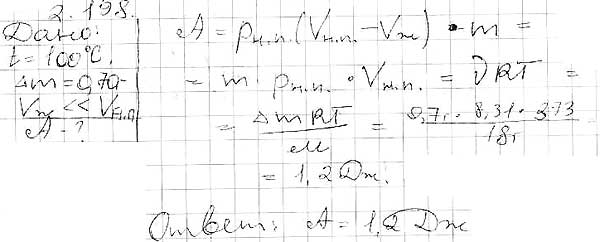 2.198.
Дано:
t = 100°C.
Δm = 0,7г
Vж << Vн.п.
A - ?
A = pн.п.(Vн.п. - Vж) · m =
= m pн.п. · Vн.п. = νRT =
= ΔmRT/M = 0,7г · 8,31 · 373/18г
= 1,2 Дж.
Ответ: A = 1,2 Дж